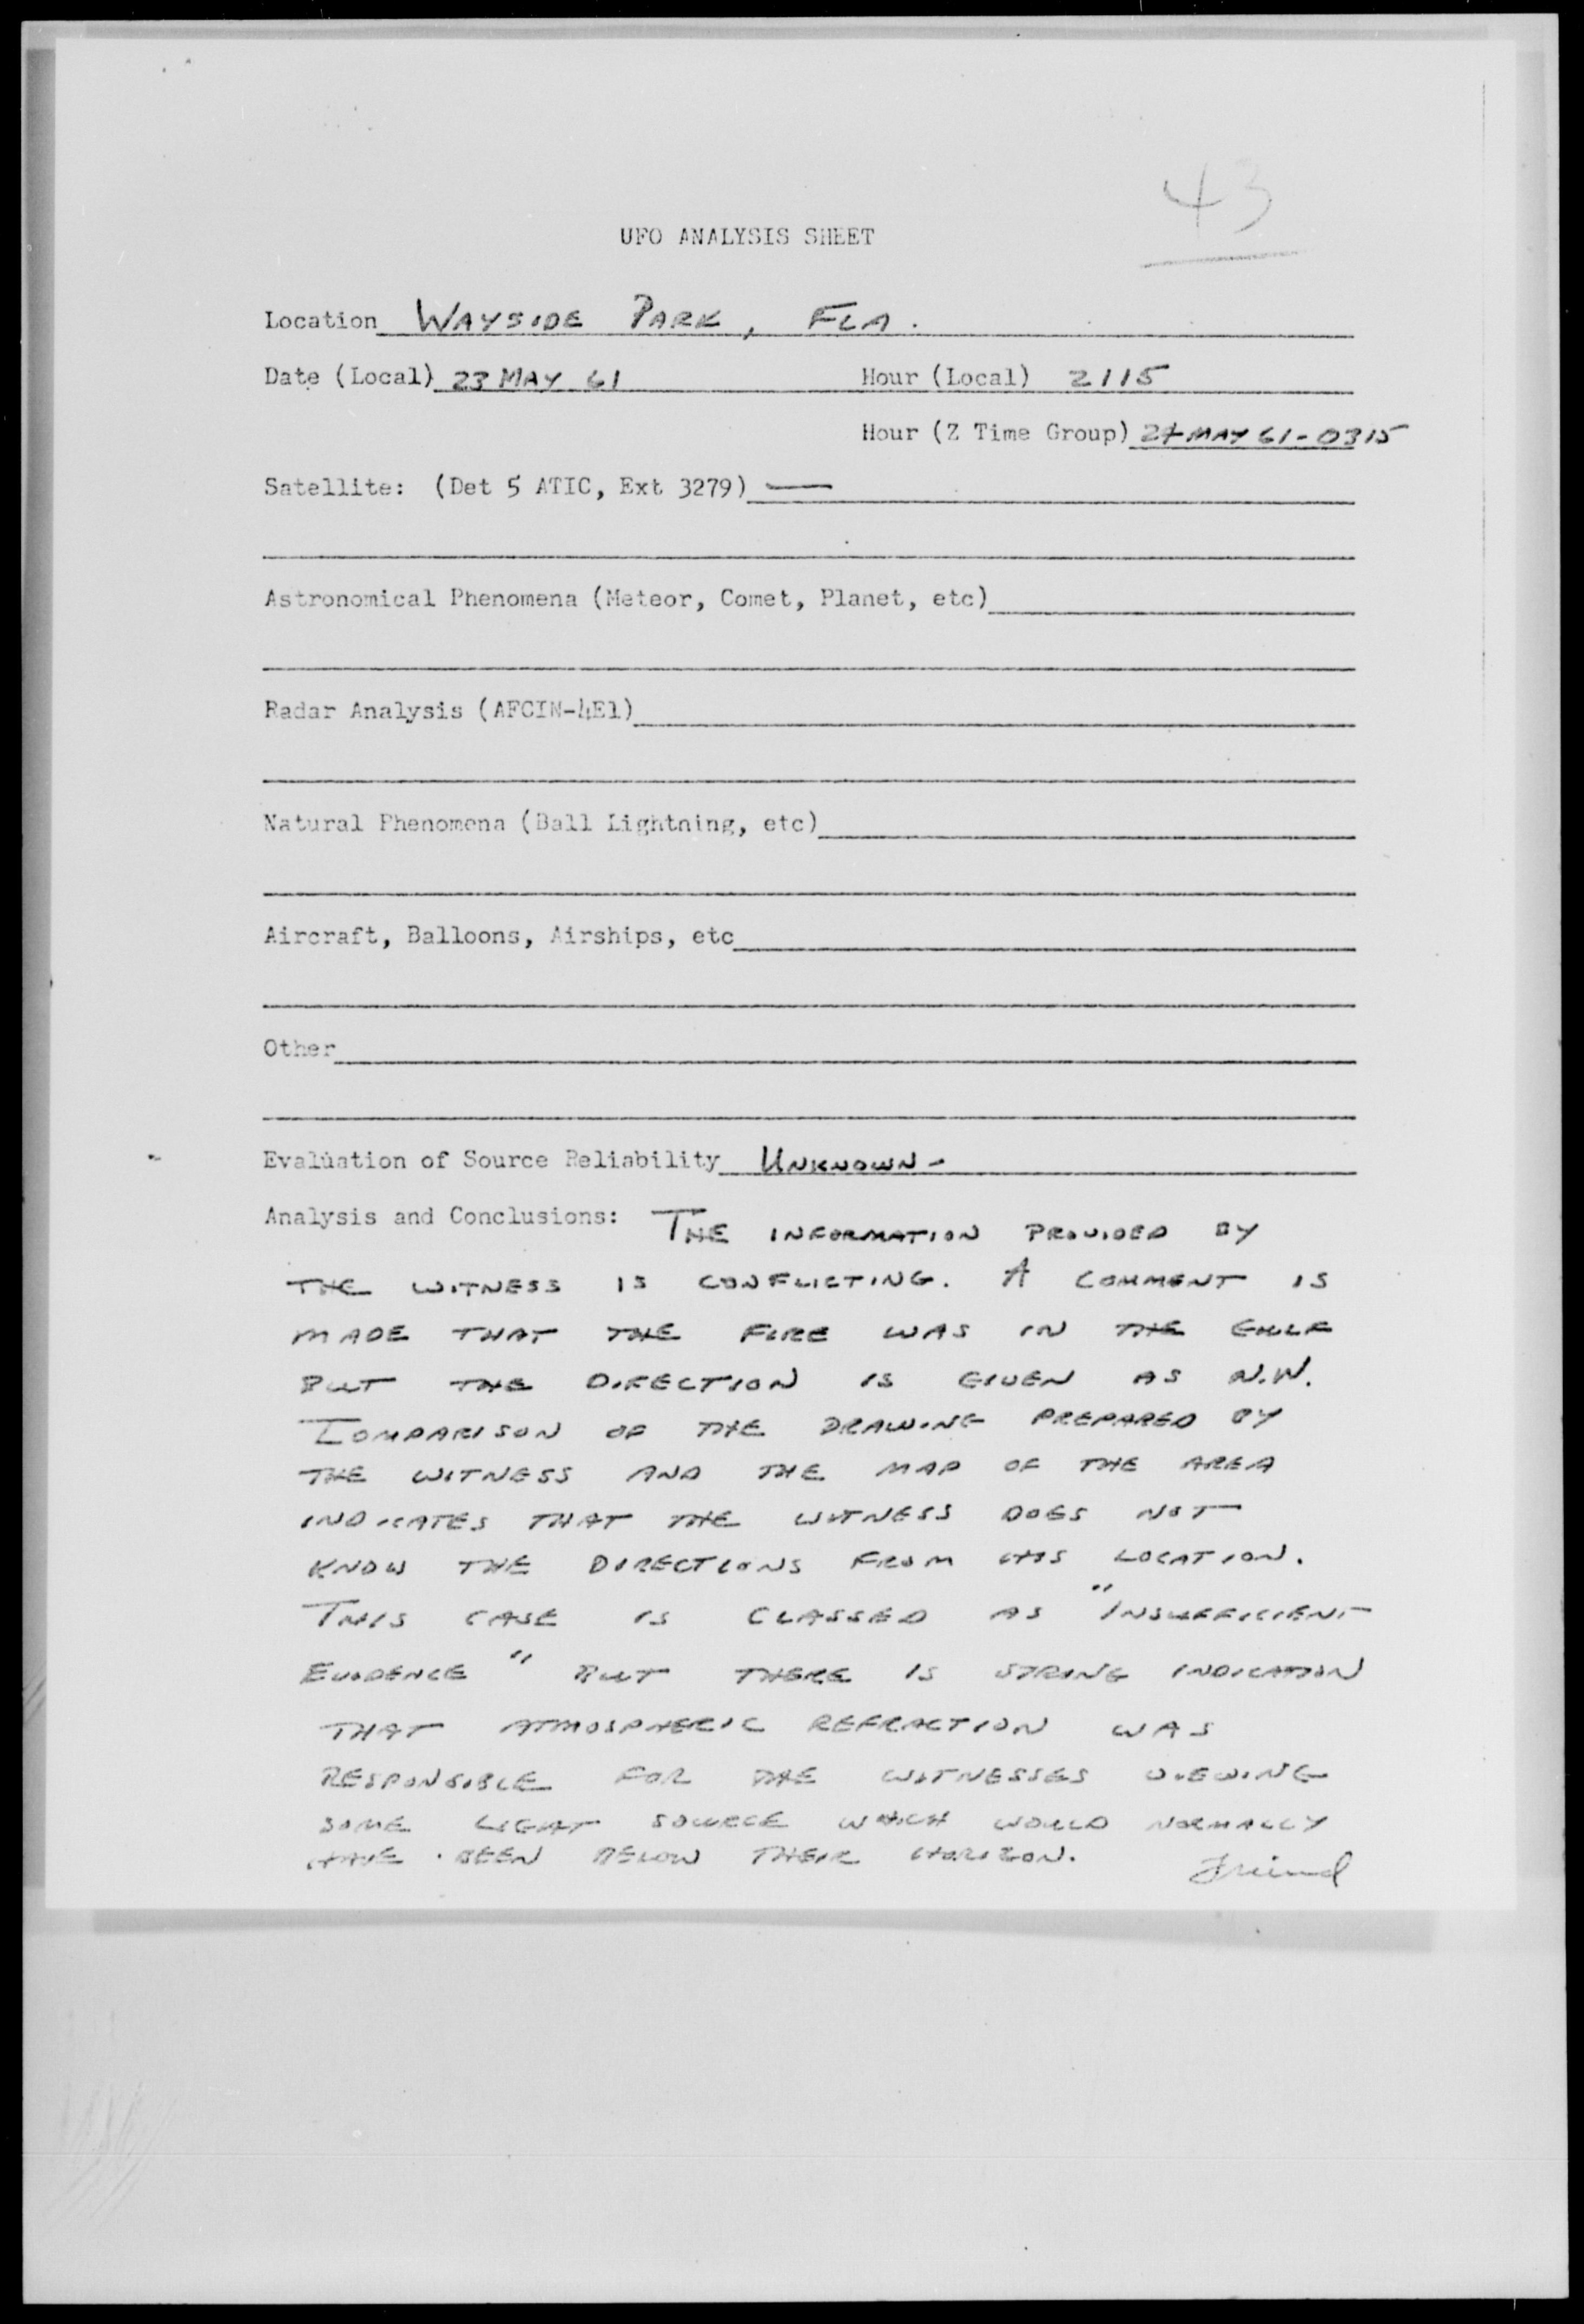 43
UFO ANALYSIS SHEET
Location WAYSIDE PARK, FLA.
Date (Local) 23 MAY 61 Hour (Local) 2115
Hour (Z Time Group) 24 MAY 61-0315
Satellite: (Det 5 ATIC, Ext 3279) —
Astronomical Phenomena (Meteor, Comet, Planet, etc)
Radar Analysis (AFCIN-4E1)
Natural Phenomena (Ball Lightning, etc)
Aircraft, Balloons, Airships, etc
Other
Evaluation of Source Reliability UNKNOWN -
Analysis and Conclusions: THE INFORMATION PROVIDED BY
THE WITNESS IS CONFLICTING. A COMMENT IS
MADE THAT THE FIRE WAS IN THE GULF
BUT THE DIRECTION IS GIVEN AS N.W.
COMPARISON OF THE DRAWING PREPARED BY
THE WITNESS AND THE MAP OF THE AREA
INDICATES THAT THE WITNESS DOES NOT
KNOW THE DIRECTIONS FROM HIS LOCATION.
THIS CASE IS CLASSED AS "INSUFFICIENT
EVIDENCE" BUT THERE IS STRONG INDICATION
THAT ATMOSPHERIC REFRACTION WAS
RESPONSIBLE FOR THE WITNESSES VIEWING
SOME LIGHT SOURCE WHICH WOULD NORMALLY
HAVE BEEN BELOW THEIR HORIZON. Friend